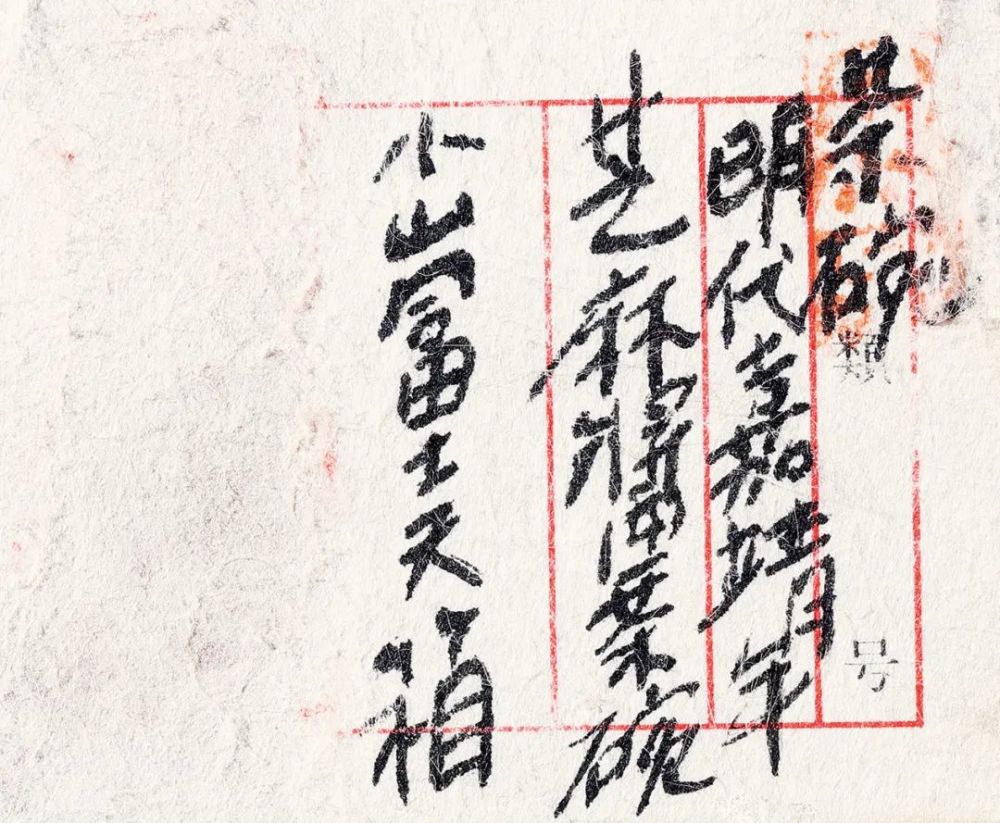 碗 類 号
明代嘉靖年
芝麻 碗
小山冨士夫箱